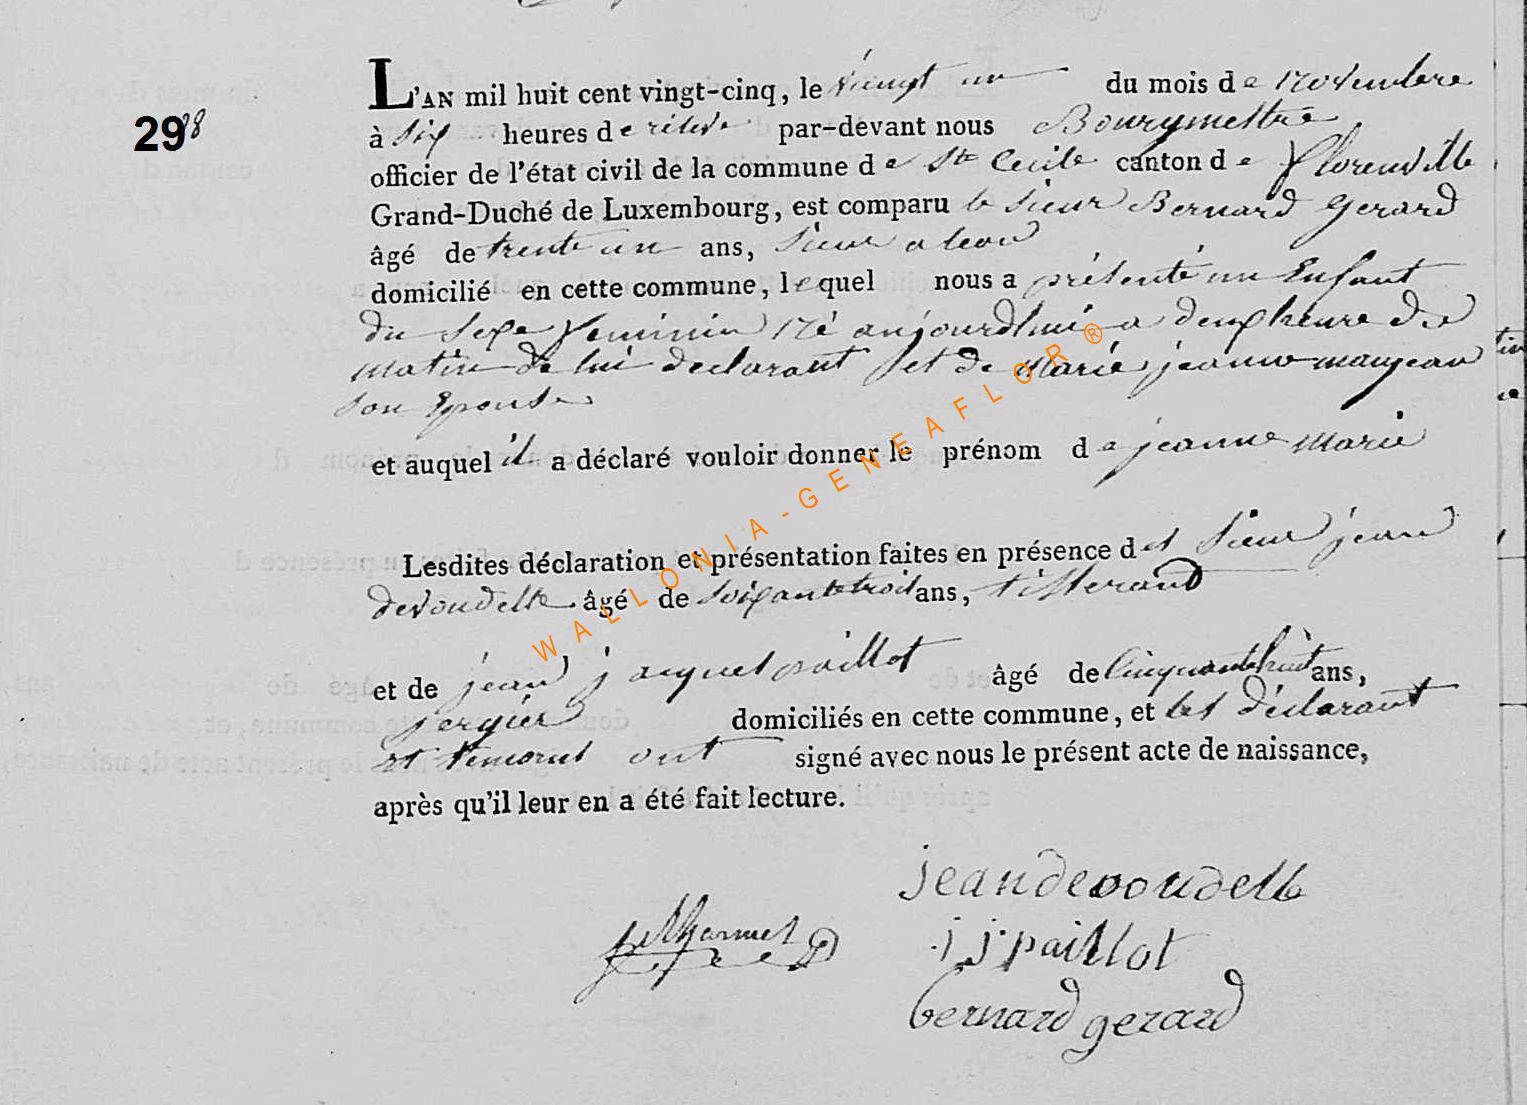 L'AN mil huit cent vingt-cinq, le vingt un du mois de novembre
2928
à six heures de relevé par-devant nous Bourgmettre
officier de l'état civil de la commune de Ste Cecile canton de florenville
Grand-Duché de Luxembourg, est comparu le sieur Bernard Gerard
âgé de trente un ans,
domicilié en cette commune, lequel nous a présenté un Enfant
du sexe feminin né aujourdhui a deux heure du
matin de lui declarant et de Marie jeanne maujean
son Epouse
et auquel il a déclaré vouloir donner le prénom de jeanne Marie
Lesdites déclaration et présentation faites en présence des sieur jean
devoudelle âgé de soixante trois ans, tisserand
et de jean jacques paillot âgé de cinquante huit ans,
sergier domiciliés en cette commune, et les déclarant
et temoins ont signé avec nous le présent acte de naissance,
après qu'il leur en a été fait lecture.
jean devoudelle
j j paillot
bernard gerard
WALLONIA-GENEAFLOR®